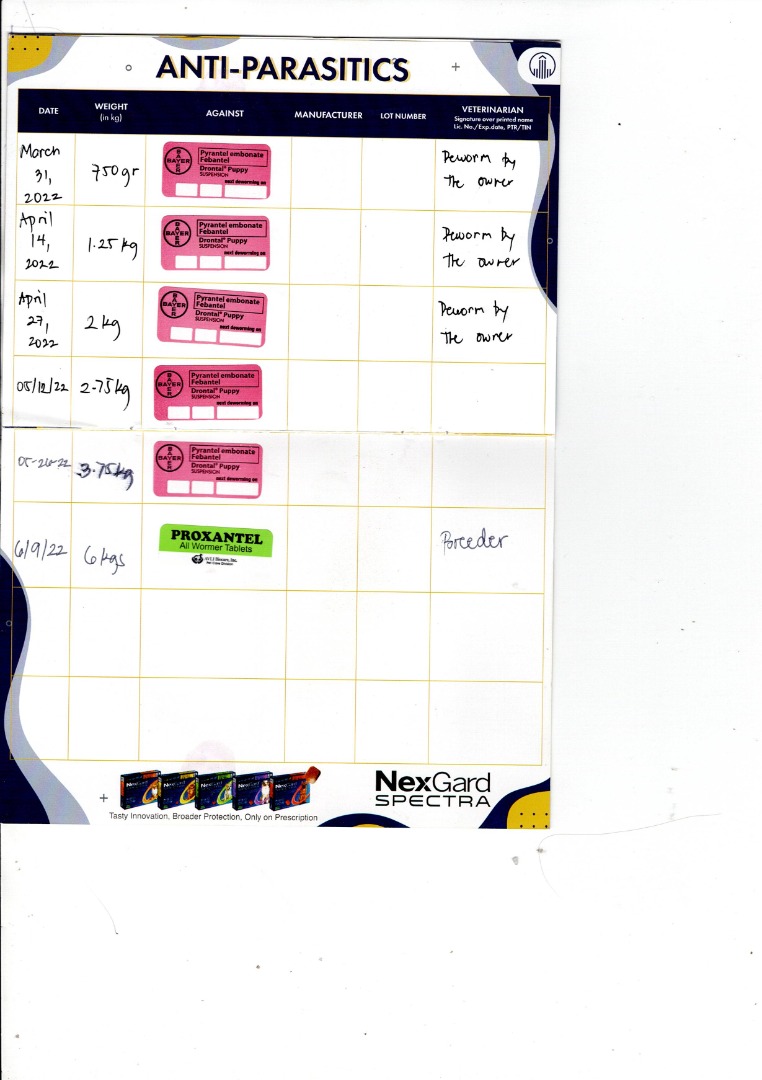 ANTI-PARASITICS
DATE
WEIGHT
(in kg)
AGAINST
MANUFACTURER
LOT NUMBER
VETERINARIAN
Signature over printed name
Lic. No./Exp.date, PTR/TIN
March
31,
2022
750gr
BAYER
BAYER
Pyrantel embonate
Febantel
Drontal® Puppy
SUSPENSION
next deworming on
Deworm by
the owner
April
14,
2022
1.25 kg
BAYER
BAYER
Pyrantel embonate
Febantel
Drontal® Puppy
SUSPENSION
next deworming on
Deworm by
the owner
April
27,
2022
2 kg
BAYER
BAYER
Pyrantel embonate
Febantel
Drontal® Puppy
SUSPENSION
next deworming on
Deworm by
the owner
05/12/22
2.75kg
BAYER
BAYER
Pyrantel embonate
Febantel
Drontal® Puppy
SUSPENSION
next deworming on
05-26-22
3.75kg
BAYER
BAYER
Pyrantel embonate
Febantel
Drontal® Puppy
SUSPENSION
next deworming on
6/9/22
6 kgs
PROXANTEL
All Wormer Tablets
Breeder
NexGard
SPECTRA
Tasty Innovation, Broader Protection, Only on Prescription